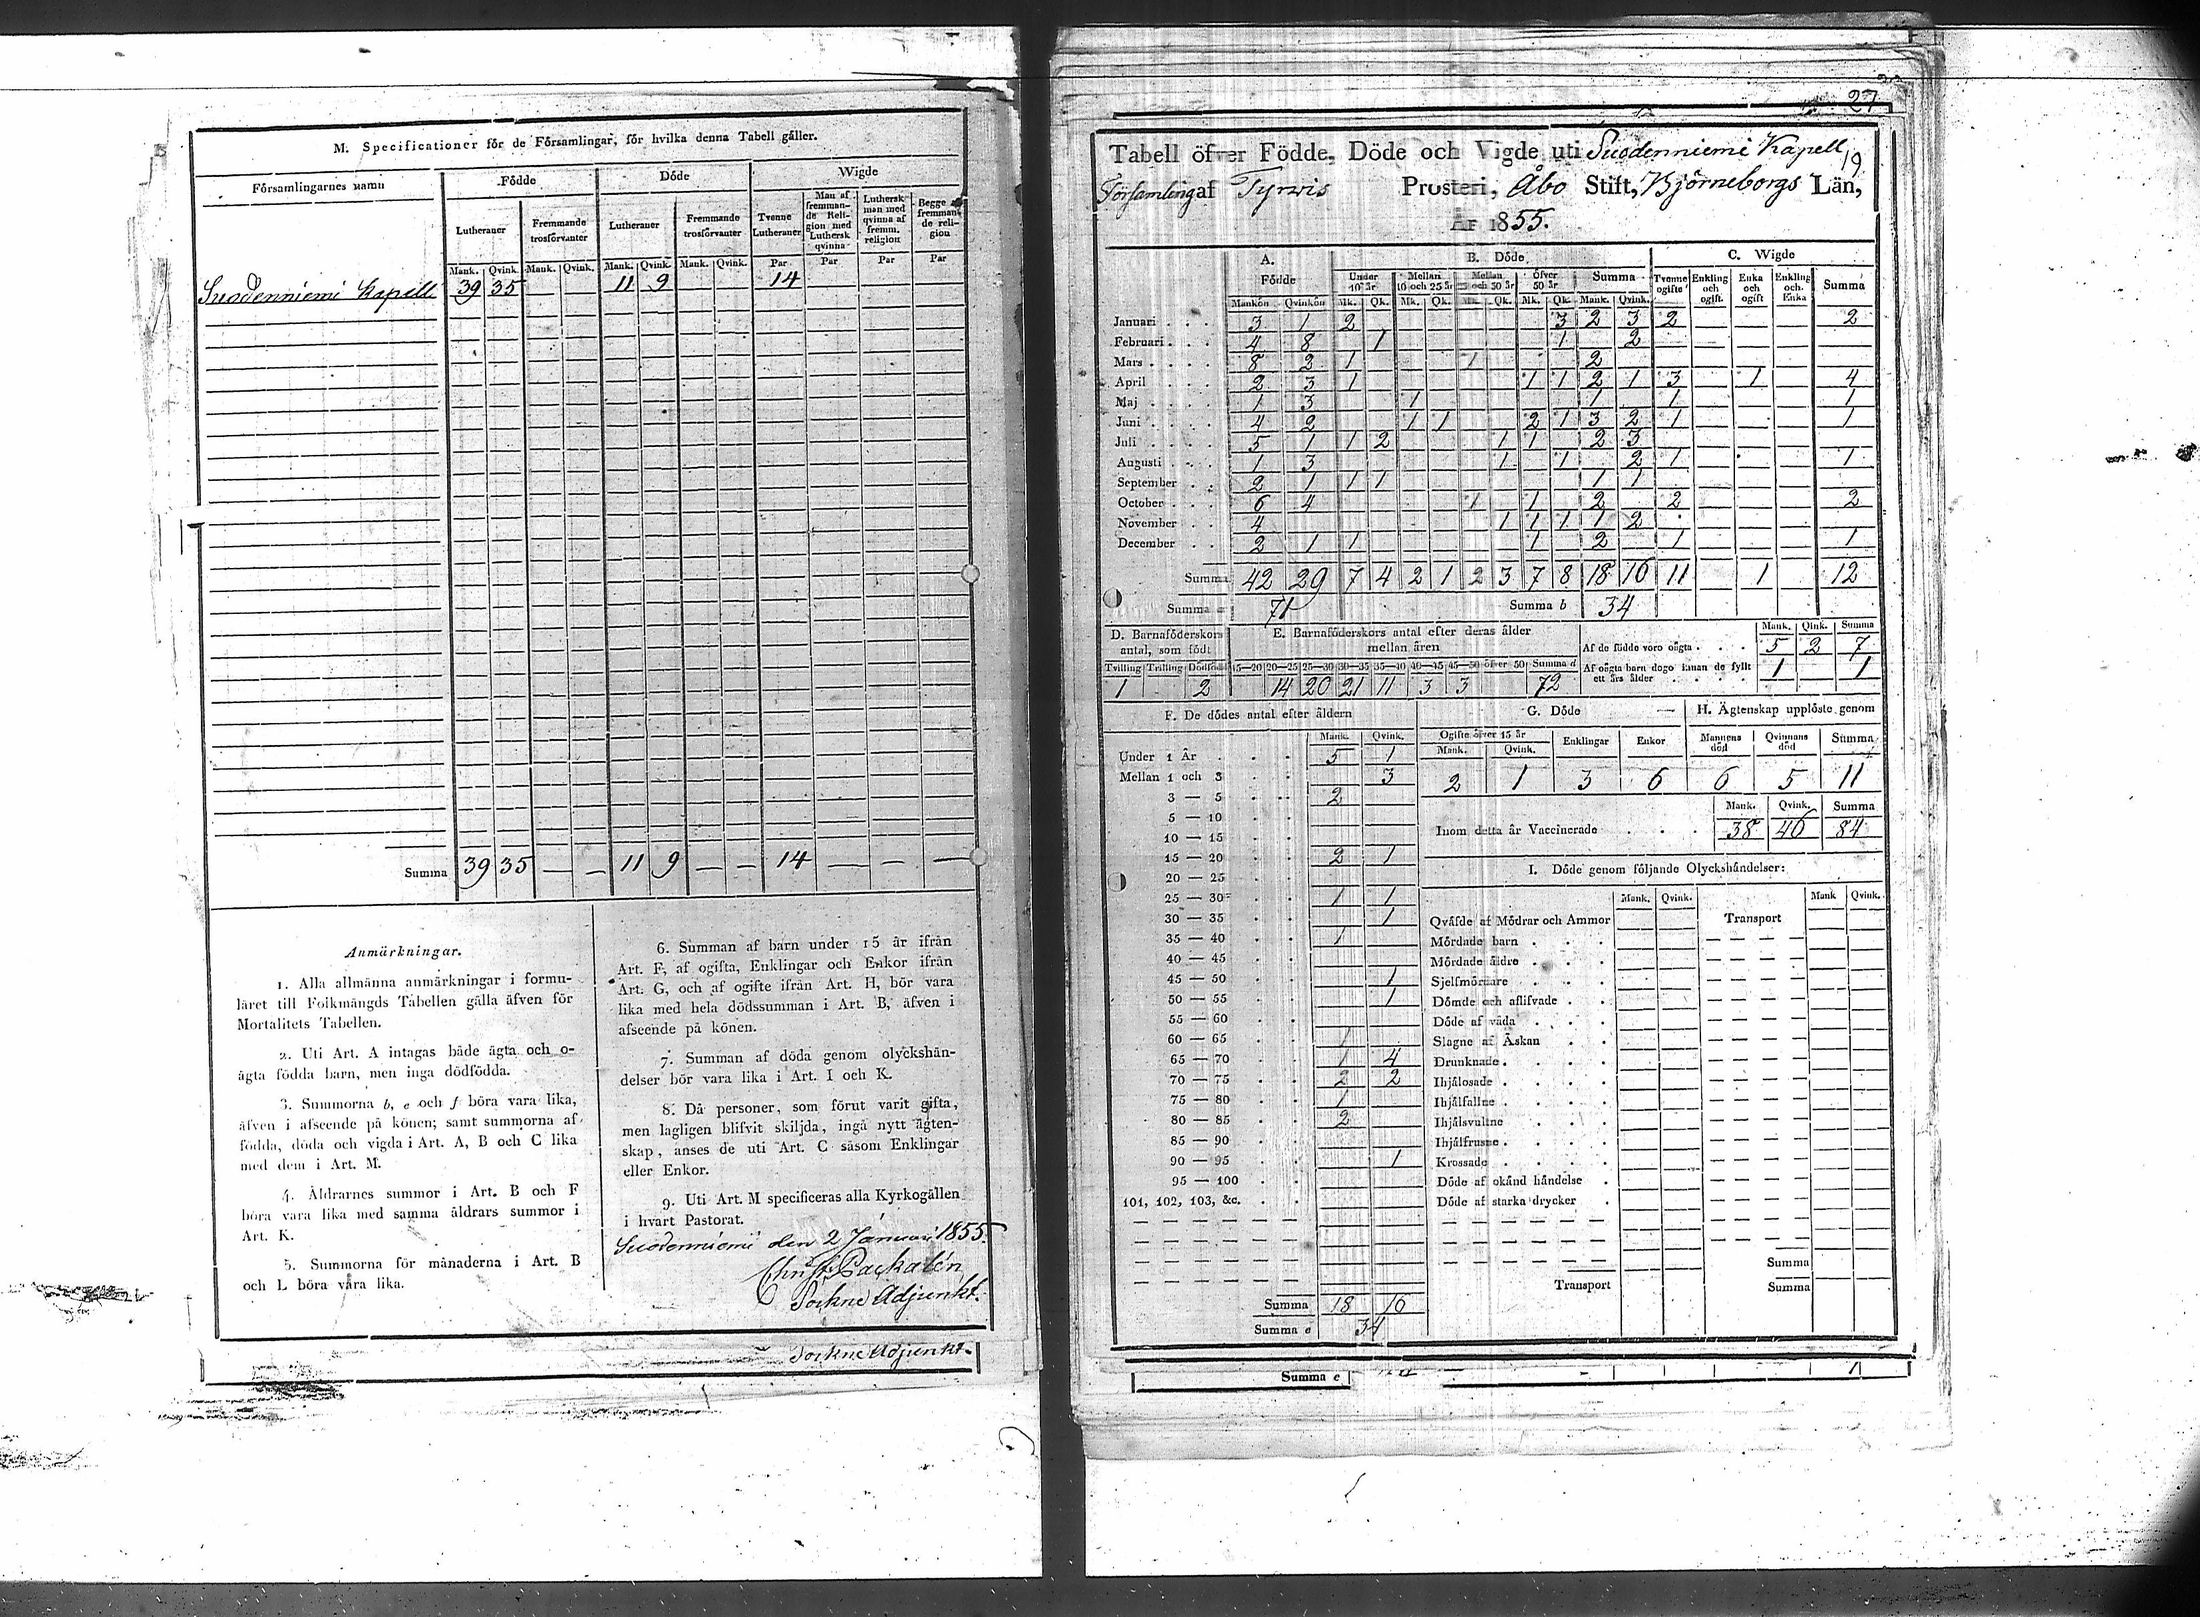 M. Specificationer för de Församlingar, för hvilka denna Tabell gäller.
Församlingarnes namn
Födde
Döde
Wigde
Lutheraner
Fremmande trosförvanter
Lutheraner
Fremmande trosförvanter
Tvenne Lutheraner
Man af fremmande Religion med Luthersk qvinna
Luthersk man med qvinna af fremm. religion
Begge af fremmande religion
Mank. Qvink. Mank. Qvink. Mank. Qvink. Mank. Qvink. Par Par Par Par
Suodenniemi Kapell 39 35 — — 11 9 — — 14
Summa 39 35 — — 11 9 — — 14 — — —
Anmärkningar.
1. Alla allmänna anmärkningar i formu-
läret till Folkmängds Tabellen gälla äfven för
Mortalitets Tabellen.
2. Uti Art. A intagas både ägta och o-
ägta födda barn, men inga dödfödda.
3. Summorna b, e och f böra vara lika,
äfven i afseende på könen; samt summorna af
födda, döda och vigda i Art. A, B och C lika
med dem i Art. M.
4. Åldrarnes summor i Art. B och F
böra vara lika med samma åldrars summor i
Art. K.
5. Summorna för månaderna i Art. B
och L böra vara lika.
6. Summan af barn under 15 år ifrån
Art. F, af ogifta, Enklingar och Enkor ifrån
Art. G, och af ogifte ifrån Art. H, bör vara
lika med hela dödssumman i Art. B, äfven i
afseende på könen.
7. Summan af döda genom olyckshän-
delser bör vara lika i Art. I och K.
8. Då personer, som förut varit gifta,
men lagligen blifvit skiljda, ingå nytt ägten-
skap, anses de uti Art. C såsom Enklingar
eller Enkor.
9. Uti Art. M specificeras alla Kyrkogällen
i hvart Pastorat.
Suodenniemi den 2 Januari 1855.
Christ. Packalén
Sockne Adjunkt.
Sockne Adjunkt.
27
19
Tabell öfver Födde, Döde och Vigde uti Suodenniemi Kapell
Församling af Tyrwis Prosteri, Åbo Stift, Björneborgs Län,
År 1855.
A. Födde
B. Döde
C. Wigde
Under 10 år
Mellan 10 och 25 år
Mellan 25 och 50 år
Öfver 50 år
Summa
Tvenne ogifte
Enkling och ogift
Enka och ogift
Enkling och Enka
Summa
Mankön Qvinkön Mk. Qk. Mk. Qk. Mk. Qk. Mk. Qk. Mank. Qvink.
Januari 3 1 2 3 2 3 2 2
Februari 4 8 1 1 2
Mars 8 2 1 1 2
April 2 3 1 1 1 2 1 3 1 4
Maj 1 3 1 1 1 1
Juni 4 2 1 1 2 1 3 2 1 1
Juli 5 1 1 2 1 1 2 3
Augusti 1 3 1 1 2 1 1
September 2 1 1 1 1 1
October 6 4 1 1 2 2 2
November 4 1 1 1 1 2
December 2 1 1 1 2 1 1
Summa 42 29 7 4 2 1 2 3 7 8 18 16 11 1 12
Summa a 71 Summa b 34
D. Barnaföderskors antal, som födt
Tvilling Trilling Dödfödt
1 2
E. Barnaföderskors antal efter deras ålder mellan åren
15—20 20—25 25—30 30—35 35—40 40—45 45—50 öfver 50 Summa d
14 20 21 11 3 3 72
Mank. Qink. Summa
Af de födde voro oägta 5 2 7
Af oägta barn dogo innan de fyllt ett års ålder 1 1
F. De dödes antal efter åldern
Mank. Qvink.
Under 1 År 5 1
Mellan 1 och 3 3
3 — 5 2
5 — 10
10 — 15
15 — 20 2 1
20 — 25
25 — 30 1 1
30 — 35 1
35 — 40 1
40 — 45
45 — 50 1
50 — 55 1
55 — 60
60 — 65 1
65 — 70 1 4
70 — 75 2 2
75 — 80 1
80 — 85 2
85 — 90
90 — 95 1
95 — 100
101, 102, 103, &c.
Summa 18 16
Summa e 34
G. Döde
Ogifte öfver 15 år
Mank. Qvink. Enklingar Enkor
2 1 3 6
H. Ägtenskap upplöste genom
Mannens död Qvinnans död Summa
6 5 11
Mank. Qvink. Summa
Inom detta år Vaccinerade 38 46 84
I. Döde genom följande Olyckshändelser:
Mank. Qvink. Mank Qvink.
Qväfde af Mödrar och Ammor Transport
Mördade barn
Mördade äldre
Sjelfmördare
Dömde och aflifvade
Döde af våda
Slagne af Åskan
Drunknade
Ihjälosade
Ihjälfallne
Ihjälsvultne
Ihjälfrusne
Krossade
Döde af okänd händelse
Döde af starka drycker
Summa
Transport Summa
Summa e